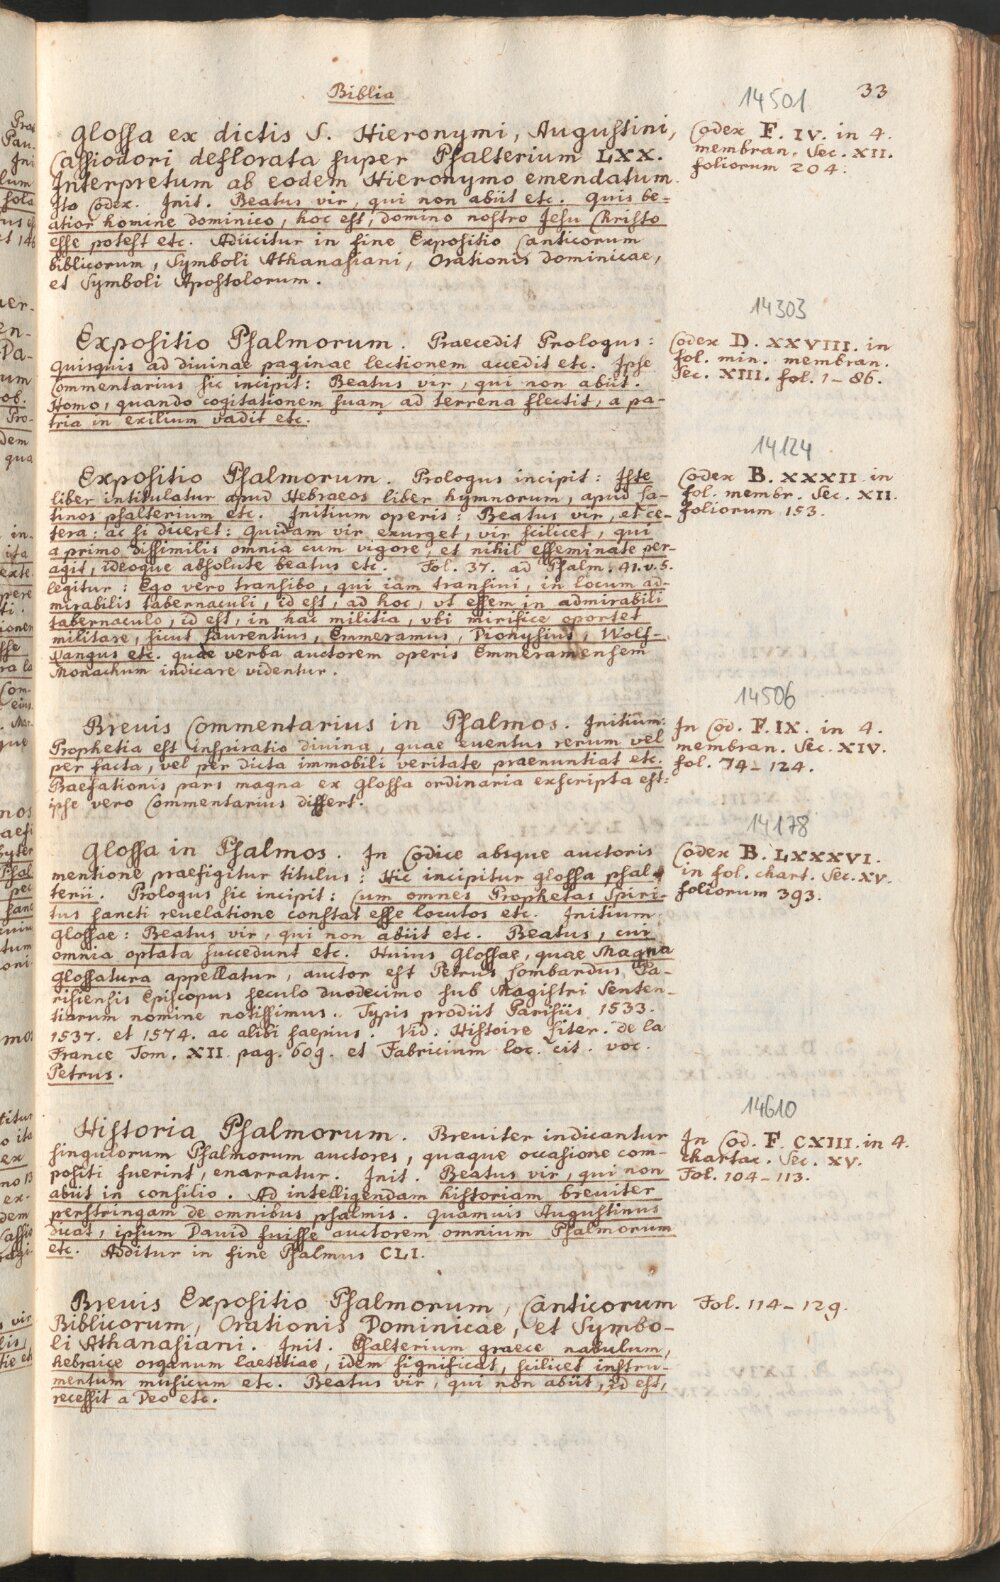 Biblia
33
14501
Glossa ex dictis S. Hieronymi, Augustini,
Cassiodori deflorata super Psalterium LXX.
Interpretum ab eodem Hieronymo emendatum.
Ita Codex. Init. Beatus vir, qui non abiit etc. Quis be=
atior homine dominico, hoc est, domino nostro Jesu Christo
esse potest etc. Adiicitur in fine Expositio Canticorum
biblicorum, Symboli Athanasiani, Orationis dominicae,
et Symboli Apostolorum.
Codex F. IV. in 4.
membran. Sec. XII.
foliorum 204.
14303
Expositio Psalmorum. Praecedit Prologus:
Quisquis ad divinae paginae lectionem accedit etc. Ipse
Commentarius sic incipit: Beatus vir, qui non abiit.
Homo, quando cogitationem suam ad terrena flectit, a pa-
tria in exilium vadit etc.
Codex D. XXVIII. in
fol. min. membran.
Sec. XIII. fol. 1-86.
14124
Expositio Psalmorum. Prologus incipit: Iste
liber intitulatur apud Hebraeos liber hymnorum, apud La-
tinos psalterium etc. Initium operis: Beatus vir, et ce-
tera: ac si diceret: Quidam vir exurget, vir scilicet, qui
a primo dissimilis omnia cum vigore, et nihil effeminate per-
agit, ideoque absolute beatus etc. Fol. 37. ad Psalm. 41. v. 5.
legitur: Ego vero transibo, qui iam transivi, in locum ad-
mirabilis tabernaculi, id est, ad hoc, vt essem in admirabili
tabernaculo, id est, in hac militia, vbi mirifice oportet
militare, sicut Laurentius, Emmeramus, Dionysius, Wolf-
gangus etc. quae verba auctorem operis Emmeramensem
Monachum indicare videntur.
Codex B. XXXII. in
fol. membr. Sec. XII.
foliorum 153.
14506
Breuis Commentarius in Psalmos. Initium:
Prophetia est inspiratio divina, quae euentus rerum vel
per facta, vel per dicta immobili veritate praenuntiat etc.
Praefationis pars magna ex Glossa ordinaria exscripta est:
ipse vero Commentarius differt.
In Cod. F. IX. in 4.
membran. Sec. XIV.
fol. 74-124.
14178
Glossa in Psalmos. In Codice absque auctoris
mentione praefigitur titulus: Hic incipitur glossa psal-
terii. Prologus sic incipit: Cum omnes Prophetas Spiri-
tus sancti reuelatione constat esse locutos etc. Initium
glossae: Beatus vir, qui non abiit etc. Beatus, cui
omnia optata succedunt etc. Huius Glossae, quae Magna
glossatura appellatur, auctor est Petrus Lombardus, Pa-
risiensis Episcopus seculo duodecimo sub Magistri Senten-
tiarum nomine notissimus. Typis prodiit Parisiis 1533.
1537. et 1574. ac alibi saepius. Vid. Histoire Liter. de la
France Tom. XII. pag. 609. et Fabricium loc. cit. voc.
Petrus.
Codex B. LXXXVI.
in fol. chart. Sec. XV.
foliorum 393.
14610
Historia Psalmorum. Breuiter indicantur
singulorum Psalmorum auctores, quaque occasione com-
positi fuerint, enarratur. Init. Beatus vir, qui non
abiit in consilio. Ad intelligendam historiam breuiter
perstringam de omnibus psalmis. Quamuis Augustinus
dicat, ipsum Dauid fuisse auctorem omnium Psalmorum
etc. Additur in fine Psalmus CLI.
In Cod. F. CXIII. in 4.
chartac. Sec. XV.
Fol. 104-113.
Breuis Expositio Psalmorum, Canticorum
Biblicorum, Orationis Dominicae, et Symbo-
li Athanasiani. Init. Psalterium graece nabulum,
hebraice organum laetitiae, idem significat, scilicet instru-
mentum musicum etc. Beatus vir, qui non abiit, id est,
recessit a Deo etc.
Fol. 114-129.